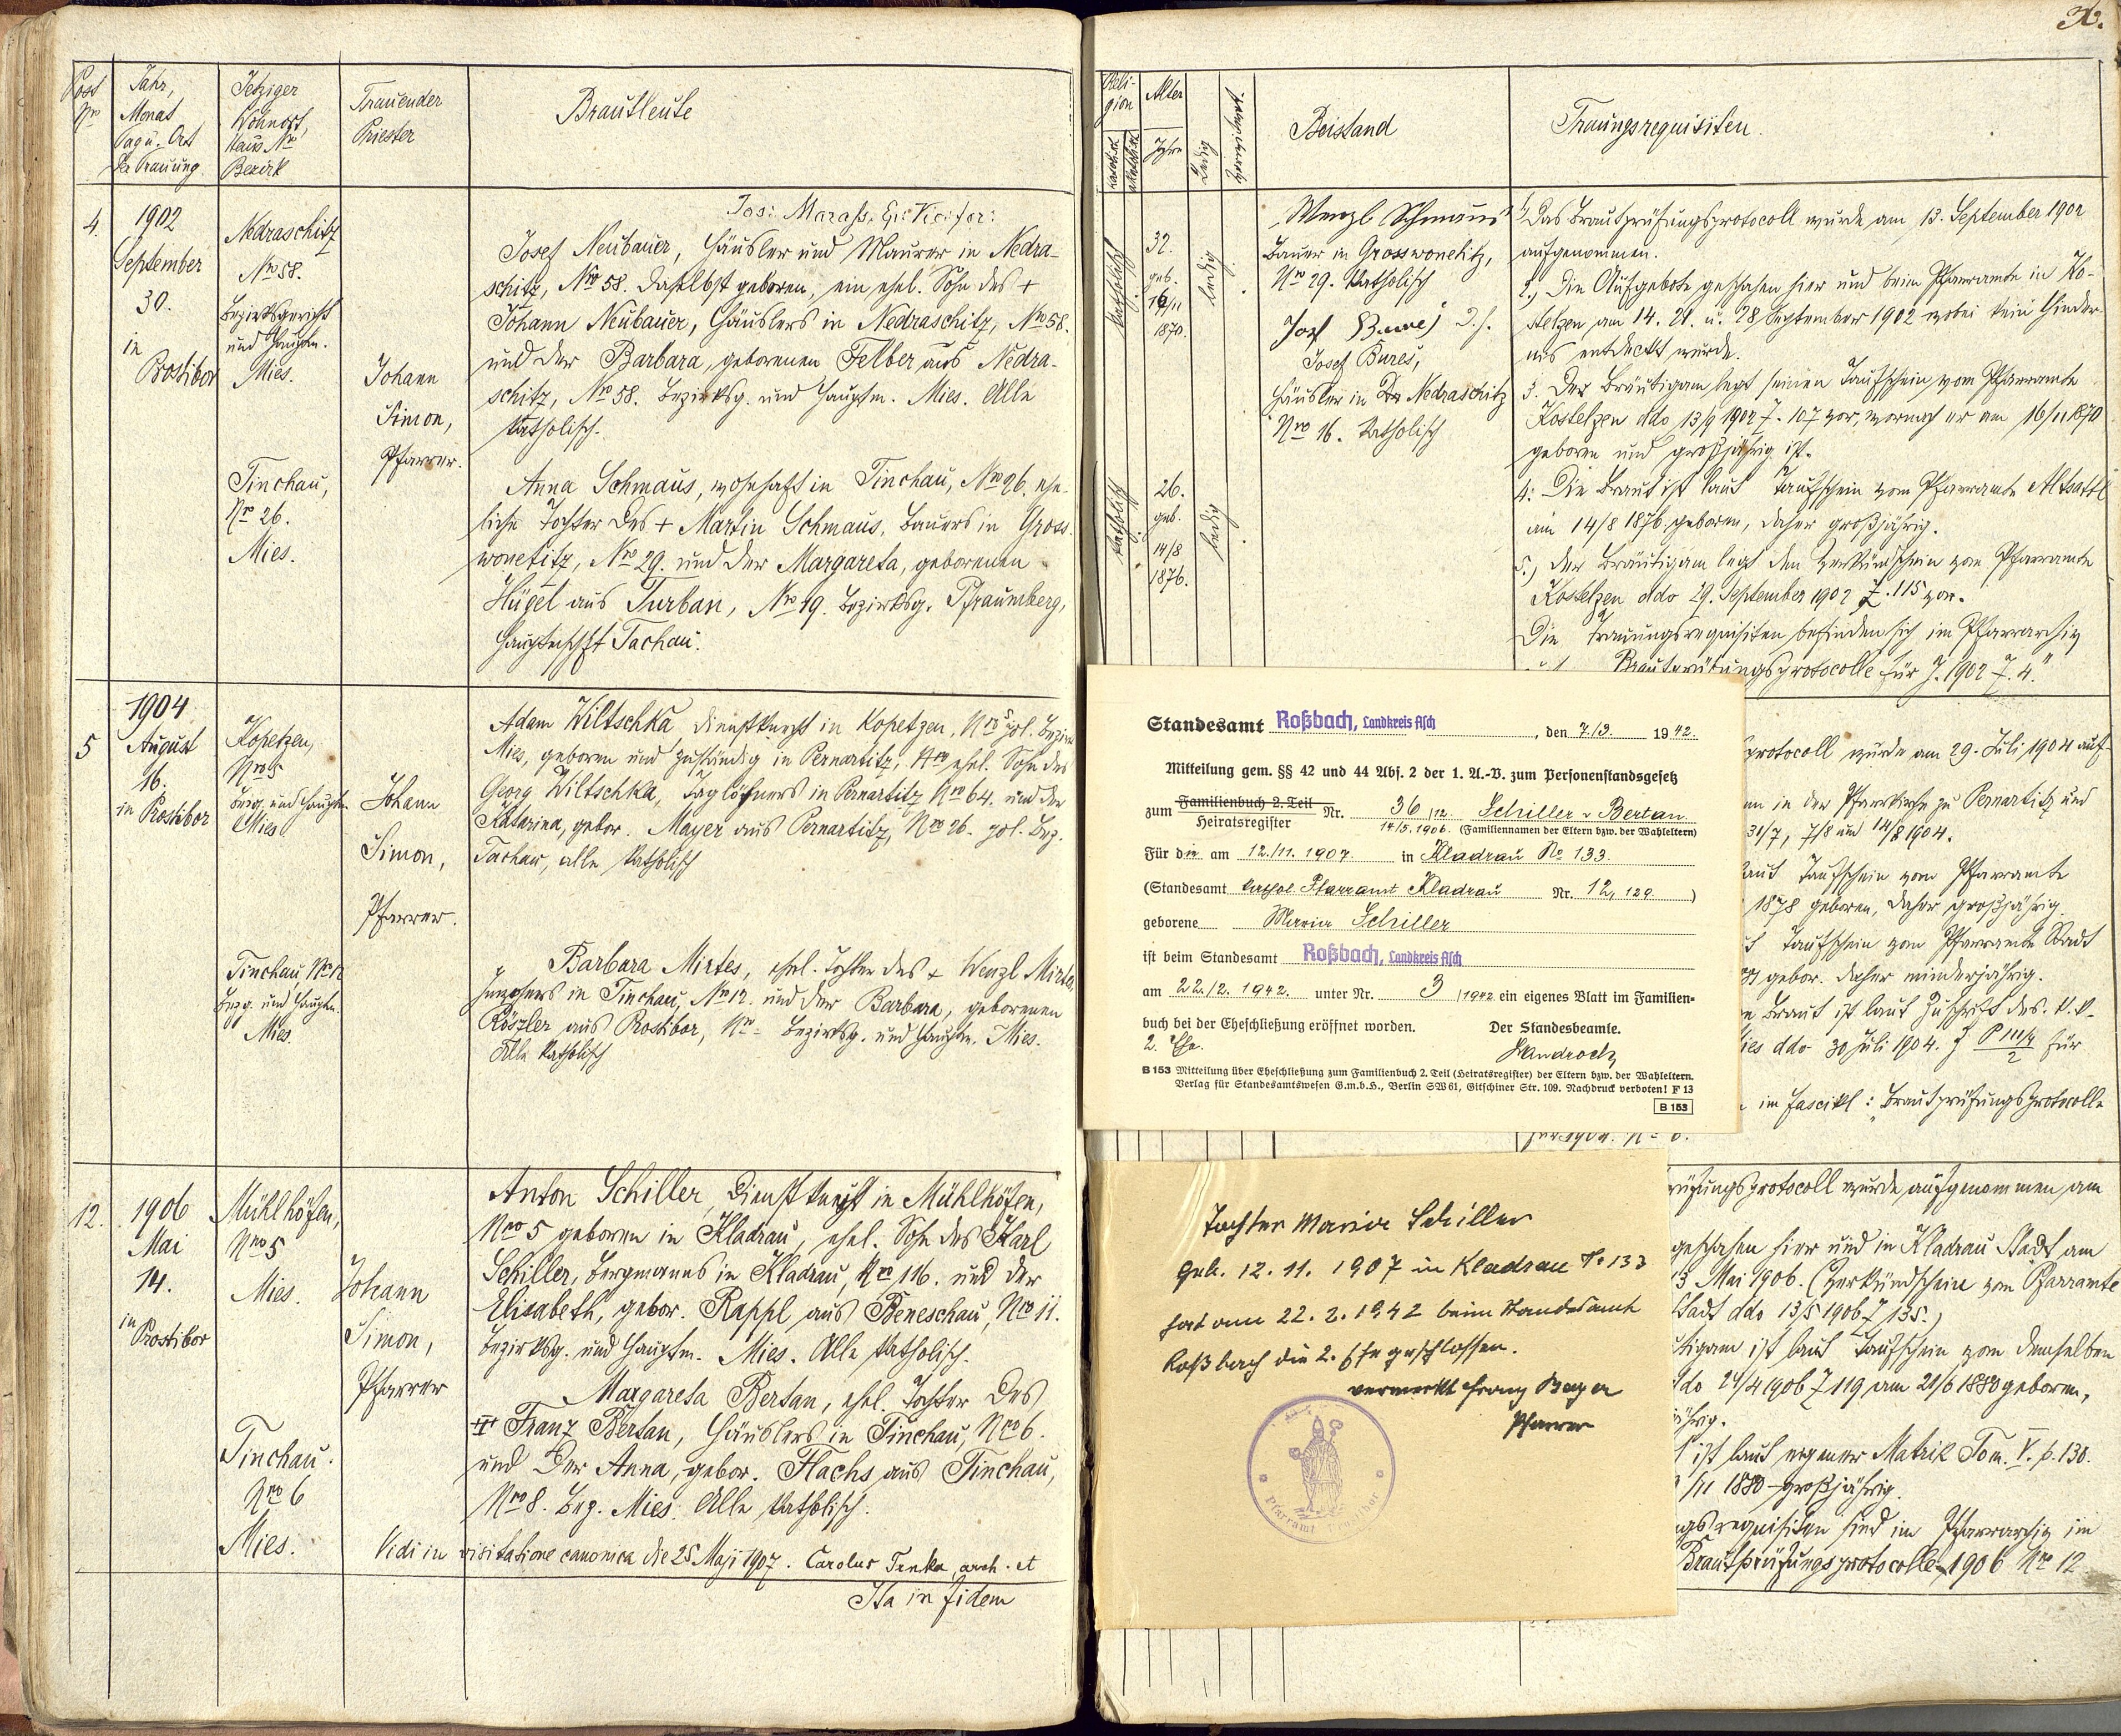 Post
Nro
Jahr,
Monat
Tag u. Ort
der Trauung
Jetziger
Wohnort,
Haus Nro
Bezirk
Trauender
Priester
Brautleute
4.
1902
September
30.
in
Prostibor
Nedraschitz
Nro 58.
Bezirksgericht
und Hauptm.
Mies.
Johann
Simon,
Pfarrer.
Josef Neubauer, Häusler und Maurer in Nedra-
schitz, Nro 58. daselbst geboren, ein ehel. Sohn des +
Johann Neubauer, Häuslers in Nedraschitz, Nro 58.
und der Barbara, geborenen Felber aus Nedra-
schitz, Nro 58. Bezirksg. und Hauptm. Mies. Alle
katholisch.
Tinchau,
Nro 26.
Mies.
Anna Schmaus, wohnhaft in Tinchau, Nro 26. ehe-
liche Tochter des + Martin Schmaus, Bauers in Gross-
wonetitz, Nro 29. und der Margareta, geborenen
Hügel aus Turban, Nro 19. Bezirksg. Pfraumberg,
Tachau.
5
1904
August
16.
in Prostibor
Kopetzen,
Nro 5
Bezg. und Hauptm.
Mies
Johann
Simon,
Pfarrer.
Adam Wiltschka, Dienstknecht in Kopetzen, Nro 5 pol. Bezirk
Mies, geboren und zuständig in Pernartitz, Nro ehel. Sohn des
Georg Wiltschka, Taglöhners in Pernartitz Nro 64. und der
Katarina, gebor. Mayer aus Pernartitz, Nro 26. pol. Bez.
Tachau, alle katholisch
Tinchau, Nro 12
Bezg. und Hauptm.
Mies.
Barbara Mirtes, ehel. Tochter des + Wenzl Mirtes
in Tinchau, Nro 12. und der Barbara, geborenen
Röszler aus Prostibor, Nro - Bezirksg. und Hauptm. Mies.
Alle katholisch
12.
1906
Mai
14.
in
Prostibor
Mühlhöfen,
Nro 5
Mies.
Johann
Simon,
Pfarrer
Anton Schiller, Dienstknecht in Mühlhöfen,
Nro 5 geboren in Kladrau, ehel. Sohn des Karl
Schiller, Bergmanns in Kladrau, Nro 116. und der
Elisabeth, gebor. Rappl aus Beneschau, Nro 11.
Bezirksg. und Hauptm. Mies. Alle katholisch.
Tinchau.
Nro 6
Mies.
Margareta Bertan, ehel. Tochter des
Franz Bertan, Häuslers in Tinchau, Nro 6.
und der Anna, gebor. Flachs aus Tinchau,
Nro 8. Bez. Mies. Alle katholisch.
Vidi in visitatione canonica die 25 Maji 1907. Carolus
Ita in fidem
Reli-
gion
Alter
Jahre
Ledig
Beistand
Trauungsrequisiten.
katholisch
32.
geb.
16/11
1870.
ledig
Wenzl Schmaus
Bauer in Grosswonetitz,
Nro 29. katholisch
Josef Bureš,
Häusler in Nedraschitz
Nro 16. katholisch
katholisch
26.
geb.
14/8
1876.
ledig
1. Das Brautprüfungsprotocoll wurde am 13. September 1902
aufgenommen.
2.) Die Aufgebote geschahen hier und beim Pfarramte in Ko-
stelzen am 14. 21. u. 28 September 1902 wobei kein Hinder-
nis entdeckt wurde.
3. Der Bräutigam legt seinen Taufschein vom Pfarramte
Kostelzen ddo 13/9 1902 Z. 107 vor, wornach er am 16/11 1870
geboren und großjährig ist.
4. Die Braut ist laut Taufschein vom Pfarramte Altsattl
am 14/8 1876 geboren, daher großjährig.
5.) Der Bräutigam legt den Verkündschein vom Pfarramte
Kostelzen ddo 29. September 1902 Z. 115 vor.
Die Trauungsrequisiten befinden sich im Pfarrarchiv
Brautprüfungsprotocolle für J. 1902 Z. 4."
protocoll wurde am 29. Juli 1904 auf-
in der Pfarrkirche zu Pernartitz und
31/7, 7/8 und 14/8 1904.
laut Taufschein vom Pfarramte
1878 geboren, daher großjährig.
Taufschein vom Pfarramte Stadt
gebor. daher minderjährig.
Braut ist laut Zuschrift des k.k.
ddo 30 Juli 1904. für
im Fascikl: "Brautprüfungsprotocolle
für 1904. Nro
Standesamt Roßbach, Landkreis Asch, den 7./3. 1942.
Mitteilung gem. §§ 42 und 44 Abs. 2 der 1. A.-V. zum Personenstandsgesetz
zum Familienbuch 2. Teil Heiratsregister Nr. 36/12 Schiller - Bertan
14/5. 1906. (Familiennamen der Eltern bzw. der Wahleltern)
Für die am 12./11. 1907. in Kladrau No 133.
(Standesamt kathol Pfarramt Kladrau Nr. 12, 129)
geborene Maria Schiller
ist beim Standesamt Roßbach, Landkreis Asch
am 22./2. 1942. unter Nr. 3/1942 ein eigenes Blatt im Familien-
buch bei der Eheschließung eröffnet worden.
2. Ehe.
Der Standesbeamte.
B 153 Mitteilung über Eheschließung zum Familienbuch 2. Teil (Heiratsregister) der Eltern bzw. der Wahleltern.
Verlag für Standesamtswesen G.m.b.H., Berlin SW 61, Gitschiner Str. 109. Nachdruck verboten! F 13
B 153
Tochter Maria Schiller
geb. 12.11.1907 in Kladrau No 133
hat am 22.2.1942 beim Standesamte
Roßbach die 2. Ehe geschlossen.
vermerkt Franz Bayer
Pfarrer
Pfarramt Prostibor
prüfungsprotocoll wurde aufgenommen am
geschahen hier und in Kladrau Stadt am
13 Mai 1906. (Verkündschein vom Pfarramte
Stadt ddo 13/5 1906 Z 135.)
Bräutigam ist laut Taufschein vom demselben
ddo 24/4 1906 Z 119 am 21/6 1880 geboren,
ist laut eigener Matrik Tom. V. p. 130.
/11 1880 - großjährig.
requisiten sind im Pfarrarchiv im
Brautprüfungsprotocolle 1906 Nro 12